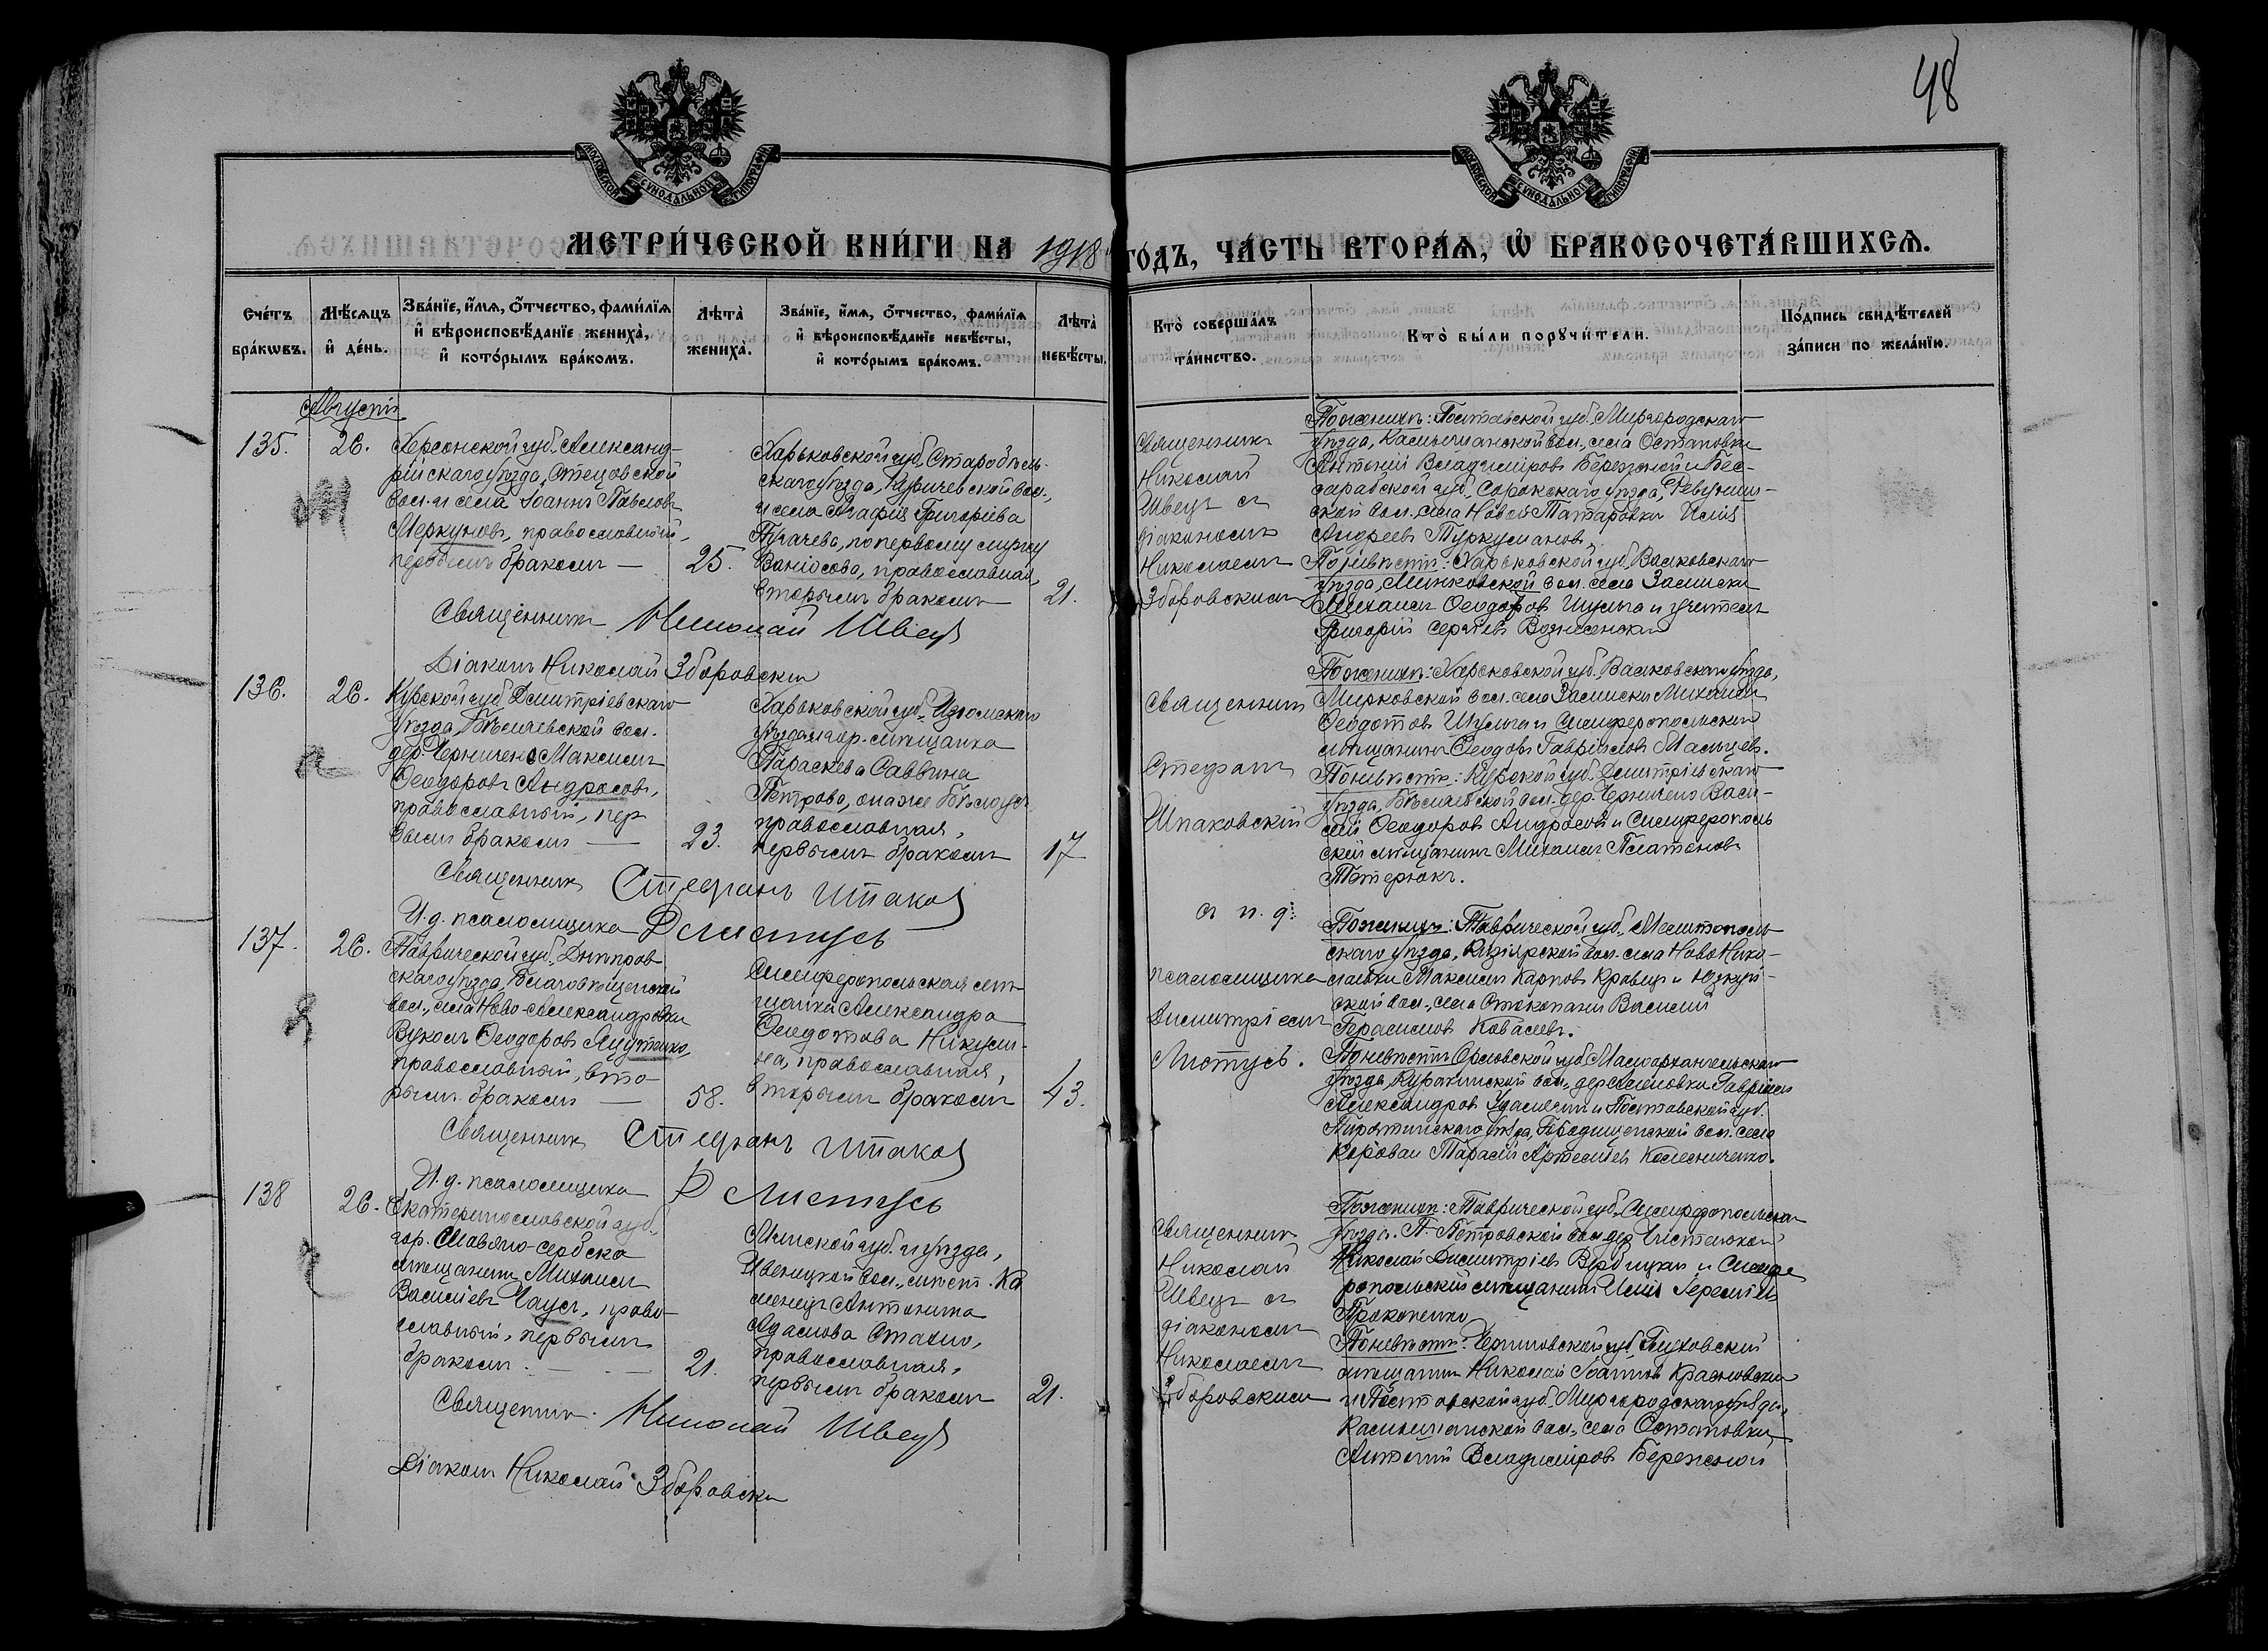 48
МОСКОВСКОЙ СѴНОДАЛЬНОЙ ТИПОГРАФІИ
МОСКОВСКОЙ СѴНОДАЛЬНОЙ ТИПОГРАФІИ
МЕТРИ́ЧЕСКОЙ КНИ́ГИ НА 1918 ГОДЪ, ЧА́СТЬ ВТОРА́Ѧ, Ѽ БРАКОСОЧЕТА́ВШИХСѦ.
Сче́тъ бра́кѡвъ.
Мѣ́сѧцъ и҆ де́нь.
Зва́нїе, и҆́мѧ, ѻ҆́тчество, фами́лїѧ
и҆ вѣроисповѣ́данїе жениха̀,
и҆ кото́рымъ бра́комъ.
Лѣ́та̀ жениха̀.
Зва́нїе, и҆́мѧ, ѻ҆́тчество, фами́лїѧ
и҆ вѣроисповѣ́данїе невѣ́сты,
и҆ кото́рымъ бра́комъ.
Лѣ́та̀ невѣ́сты.
Кто̀ соверша́лъ
та́инство.
Кто̀ бы́ли порꙋчи́тели.
По́дпись свидѣ́телей
за́писи по жела́нїю.
Августъ
135.
26.
Херсонской губ., Александ-
рійскаго уѣзда, Стецовской
вол. и села Іоаннъ Павловъ
Меркуновъ, православный,
первымъ бракомъ —
25.
Харьковской губ., Старобѣль-
скаго уѣзда, вол.,
и села Агафія Григоріева
Пугачева, по первому мужу
православная,
вторымъ бракомъ
21.
Священникъ
Николай
Швецъ съ
діакономъ
Николаемъ
Зборовскимъ
По женихѣ: Полтавской губ., Миргородскаго
уѣзда, вол., села Остаповки
Антоній Владиміровъ Бережной и Бес-
сарабской губ., Сорокскаго уѣзда,
ской вол., села Новой Татаровки Илія
Андреевъ Туркуманов.
По невѣстѣ: Харьковской губ., Валковскаго
уѣзда, вол. села
Михаилъ Ѳеодотов Шульга и учитель
Григорій Сергѣевъ Вознесенскій
Священникъ Николай Швецъ
Діаконъ Николай Зборовскій
136.
26.
Курской губ., Дмитріевскаго
уѣзда, вол.
дер. Черничено Максимъ
Ѳеодоровъ Андросовъ,
православный, пер
вымъ бракомъ —
23.
Харьковской губ., Изюмскаго
уѣзда и гор. мѣщанка
Параскева Саввина
Петрова, она же
православная,
первымъ бракомъ
17
Священникъ
Стефанъ
Шпаковскій
съ и. д.
псаломщика
Димитріемъ
Листусъ.
По женихѣ: Харьковской губ., Валковскаго уѣзда,
вол. села Михаилъ
Ѳеодотовъ Шульга и Симферопольскій
мѣщанинъ Ѳеодоръ Гавріиловъ Мальцев.
По невѣстѣ: Курской губ., Дмитріевскаго
уѣзда, вол. дер. Черничено Васи-
лій Ѳеодоровъ Андросовъ и Симферополь
скій мѣщанинъ Михаилъ Платоновъ
Священникъ Стефанъ Шпаков
И. д. псаломщика Д Листусъ
137.
26.
Таврической губ., Днѣпров
скаго уѣзда, Благовѣщенской
вол., села Ново-Александровки
Вуколъ Ѳеодоровъ Яцутенко,
православный, вто-
рымъ бракомъ —
58.
Симферопольская мѣ-
щанка Александра
Ѳеодотова Никули-
на, православная,
вторымъ бракомъ
43.
По женихѣ: Таврической губ., Мелитополь
скаго уѣзда, вол. села Ново Нико-
лаевки Максимъ Карповъ Кравец и Юзкуй-
ской вол., села Стокопани Василій
Герасимов Ковалевъ.
По невѣстѣ: Орловской губ., Малоархангельскаго
уѣзда, Куракинской вол., дер. Гавріилъ
Александров и Полтавской губ.
Пирятинскаго уѣзда, Городищенской вол. села
Коровай Тарасій Артеміев Колесниченко.
Священникъ Стефанъ Шпаков
И. д. псаломщика Д Листусъ
138
26.
Екатеринославской губ.
гор. Славяно-сербска
мѣщанинъ Михаилъ
Василіевъ Чаусъ, право-
славный, первымъ
бракомъ. — —
21.
Минской губ. и уѣзда,
Ивенецкой вол., мѣст. Ка
менецъ Антонина
Адамова
православная,
первымъ бракомъ
21.
Священникъ
Николай
Швецъ съ
діакономъ
Николаемъ
Зборовскимъ
По женихѣ: Таврической губ., Симферопольскаго
уѣзда, П. Петровской вол. дер. Чистенькой
Николай Димитріев Вербицкій и Симфе
ропольскій мѣщанинъ Илія Іереміев
Прокопенко
По невѣстѣ: Черниговской губ., Глуховскій
мѣщанинъ Николай Іоаннов
и Полтавской губ. Миргородскаго уѣзда,
вол., села Остаповки
Антоній Владиміров Бережной
Священникъ Николай Швецъ
Діаконъ Николай Зборовскій